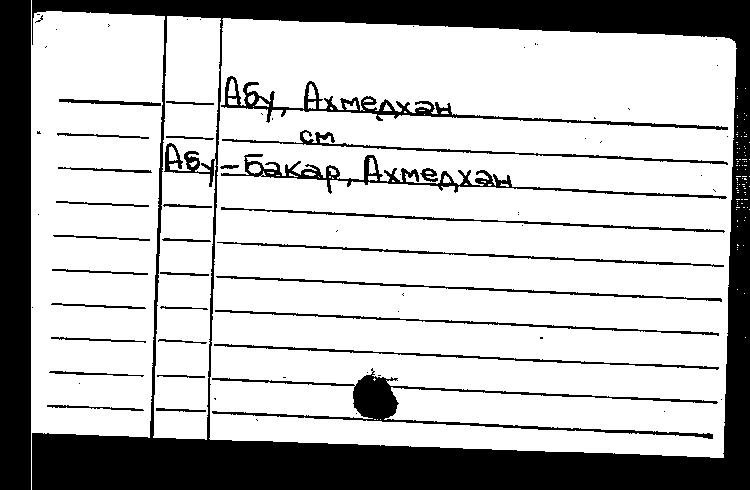 Абу, Ахмедхан
см.
Абу-Бакар, Ахмедхан